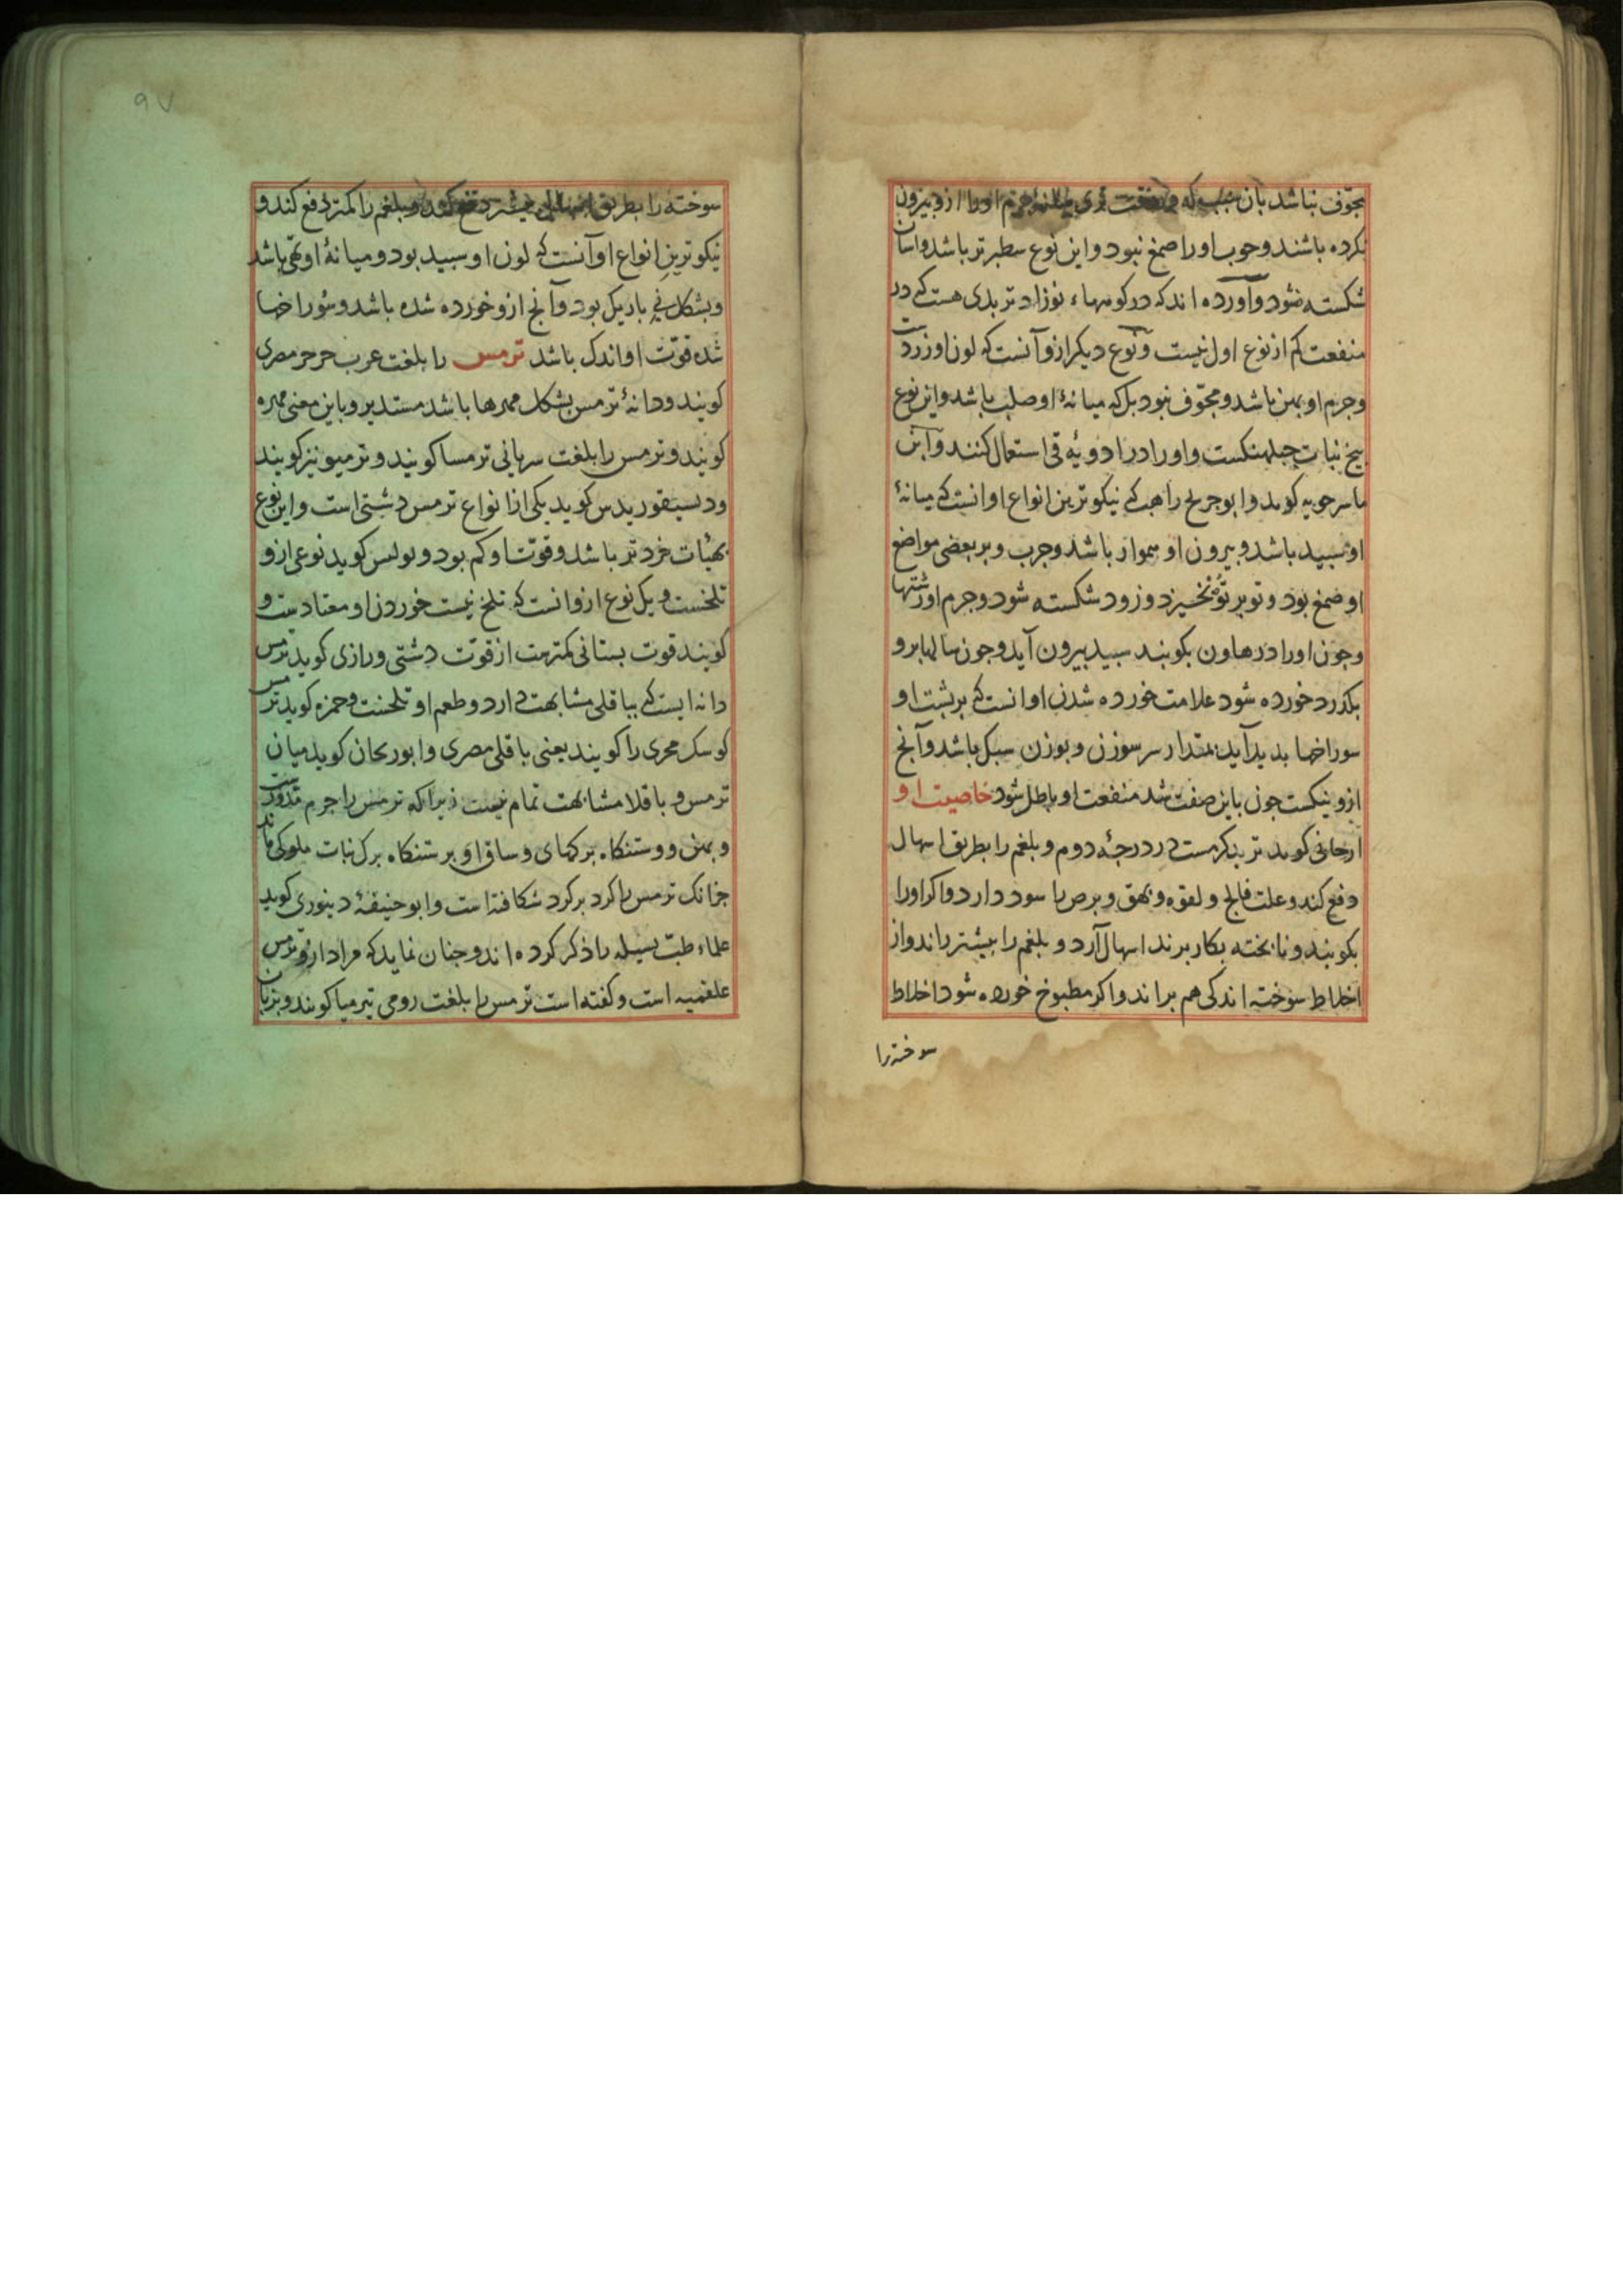 مجوف نباشد بان سبب که وقت تری میانهٔ جرم او را ازو بیرون
نکرده باشند و چوب او را صمغ نبود و این نوع سطبرتر باشد و اسان
شکسته نشود و آورده اند که در کوههاء نوزاد تربدی هست که در
منفعت کم از نوع اول نیست و نوع دیکر ازو آنست که لون او زردست
و جرم او پهن باشد و مجوف نبود بلکه میانهٔ او صلب باشد و این نوع
بیخ نبات جبلهنکست و او را در ادویهٔ قی استعمال کنند و ابن
ماسرجویه کوید و ابو جریح راهب که نیکوترین انواع او انست که میانهٔ
او سپید باشد و بیرون او هموار باشد و چرب و بر بعضی مواضع
او صمغ بود و تو بر تو نخیزد و زود شکسته شود و جرم او رشتها
و جون او را در هاون بکوبند سبید بیرون آید و جون سالها برو
بکذرد خورده شود علامت خورده شدن او انست که بر پشت او
سوراخها بدید آید بمقدار سر سوزن و بوزن سبک باشد و آنج
ازو نیکست جون باین صفت شد منفعت او باطل شود خاصیت او
ارجانی کوید تربد کرمست در درجهٔ دوم و بلغم را بطریق اسهال
دفع کند و علت فالج و لقوه و بهق و برص را سود دارد و اکر او را
بکوبند و نابخته بکار برند اسهال آرد و بلغم را بیشتر راند و از
اخلاط سوخته اندکی هم براند و اکر مطبوخ خورده شود اخلاط
سوخته را
۹۷
سوخته را بطریق اسهال بیشتر دفع کند و بلغم را کمتر دفع کند و
نیکوترین انواع او آنست که لون او سبید بود و میانهٔ او تهی باشد
و بشکل نی باریک بود و آنج ازو خورده شده باشد و سوراخها
شده قوت او اندک باشد ترمس را بلغت عرب جرجر مصری
کویند و دانهٔ ترمس بشکل مهرها باشد مستدیر و باین معنی مهره
کویند و ترمس را بلغت سریانی ترمسا کویند و ترمیو نیز کویند
و دیسقوریدس کوید یکی از انواع ترمس دشتی است و این نوع
بهیأت خردتر باشد و قوت او کم بود و بولس کوید نوعی ازو
تلخست و یک نوع ازو انست که تلخ نیست خوردن او معتادست و
کویند قوت بستانی کمترست از قوت دشتی و رازی کوید ترمس
دانه ایست که بباقلی مشابهت دارد و طعم او تلخست و حمزه کوید ترمس
کوسک مجری را کویند یعنی باقلی مصری و ابو ریحان کوید میان
ترمس و باقلا مشابهت تمام نیست زیرا که ترمس را جرم مدورست
و پهن و رستنکاه برکهای و ساق او بر رستنکاه برک نبات ملوکی ماند
جنانک ترمس را کرد بر کرد شکافته است و ابو حنیفهٔ دینوری کوید
علماء طب بسیله را ذکر کرده اند و جنان نماید که مراد ازو ترمس
علقمیه است و کفته است ترمس را بلغت رومی تیرمیا کویند و بزبان